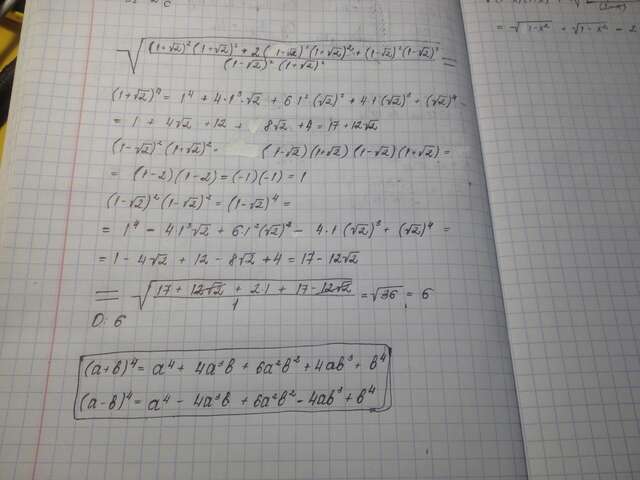 = √(1-x² + √1-x² - 2
√((1+√2)²(1+√2)² + 2(1-√2)²(1+√2)² + (1-√2)²(1-√2)² / (1-√2)²(1+√2)²) =
(1+√2)⁴ = 1⁴ + 4·1³·√2 + 6·1²(√2)² + 4·1(√2)³ + (√2)⁴ =
= 1 + 4√2 + 12 + 8√2 + 4 = 17 + 12√2
(1-√2)²(1+√2)² = (1-√2)(1+√2)(1-√2)(1+√2) =
= (1-2)(1-2) = (-1)(-1) = 1
(1-√2)²(1-√2)² = (1-√2)⁴ =
= 1⁴ - 4·1³√2 + 6·1²(√2)² - 4·1(√2)³ + (√2)⁴ =
= 1 - 4√2 + 12 - 8√2 + 4 = 17 - 12√2
= √(17 + 12√2 + 2·1 + 17 - 12√2 / 1) = √36 = 6
О: 6
(a+b)⁴ = a⁴ + 4a³b + 6a²b² + 4ab³ + b⁴
(a-b)⁴ = a⁴ - 4a³b + 6a²b² - 4ab³ + b⁴